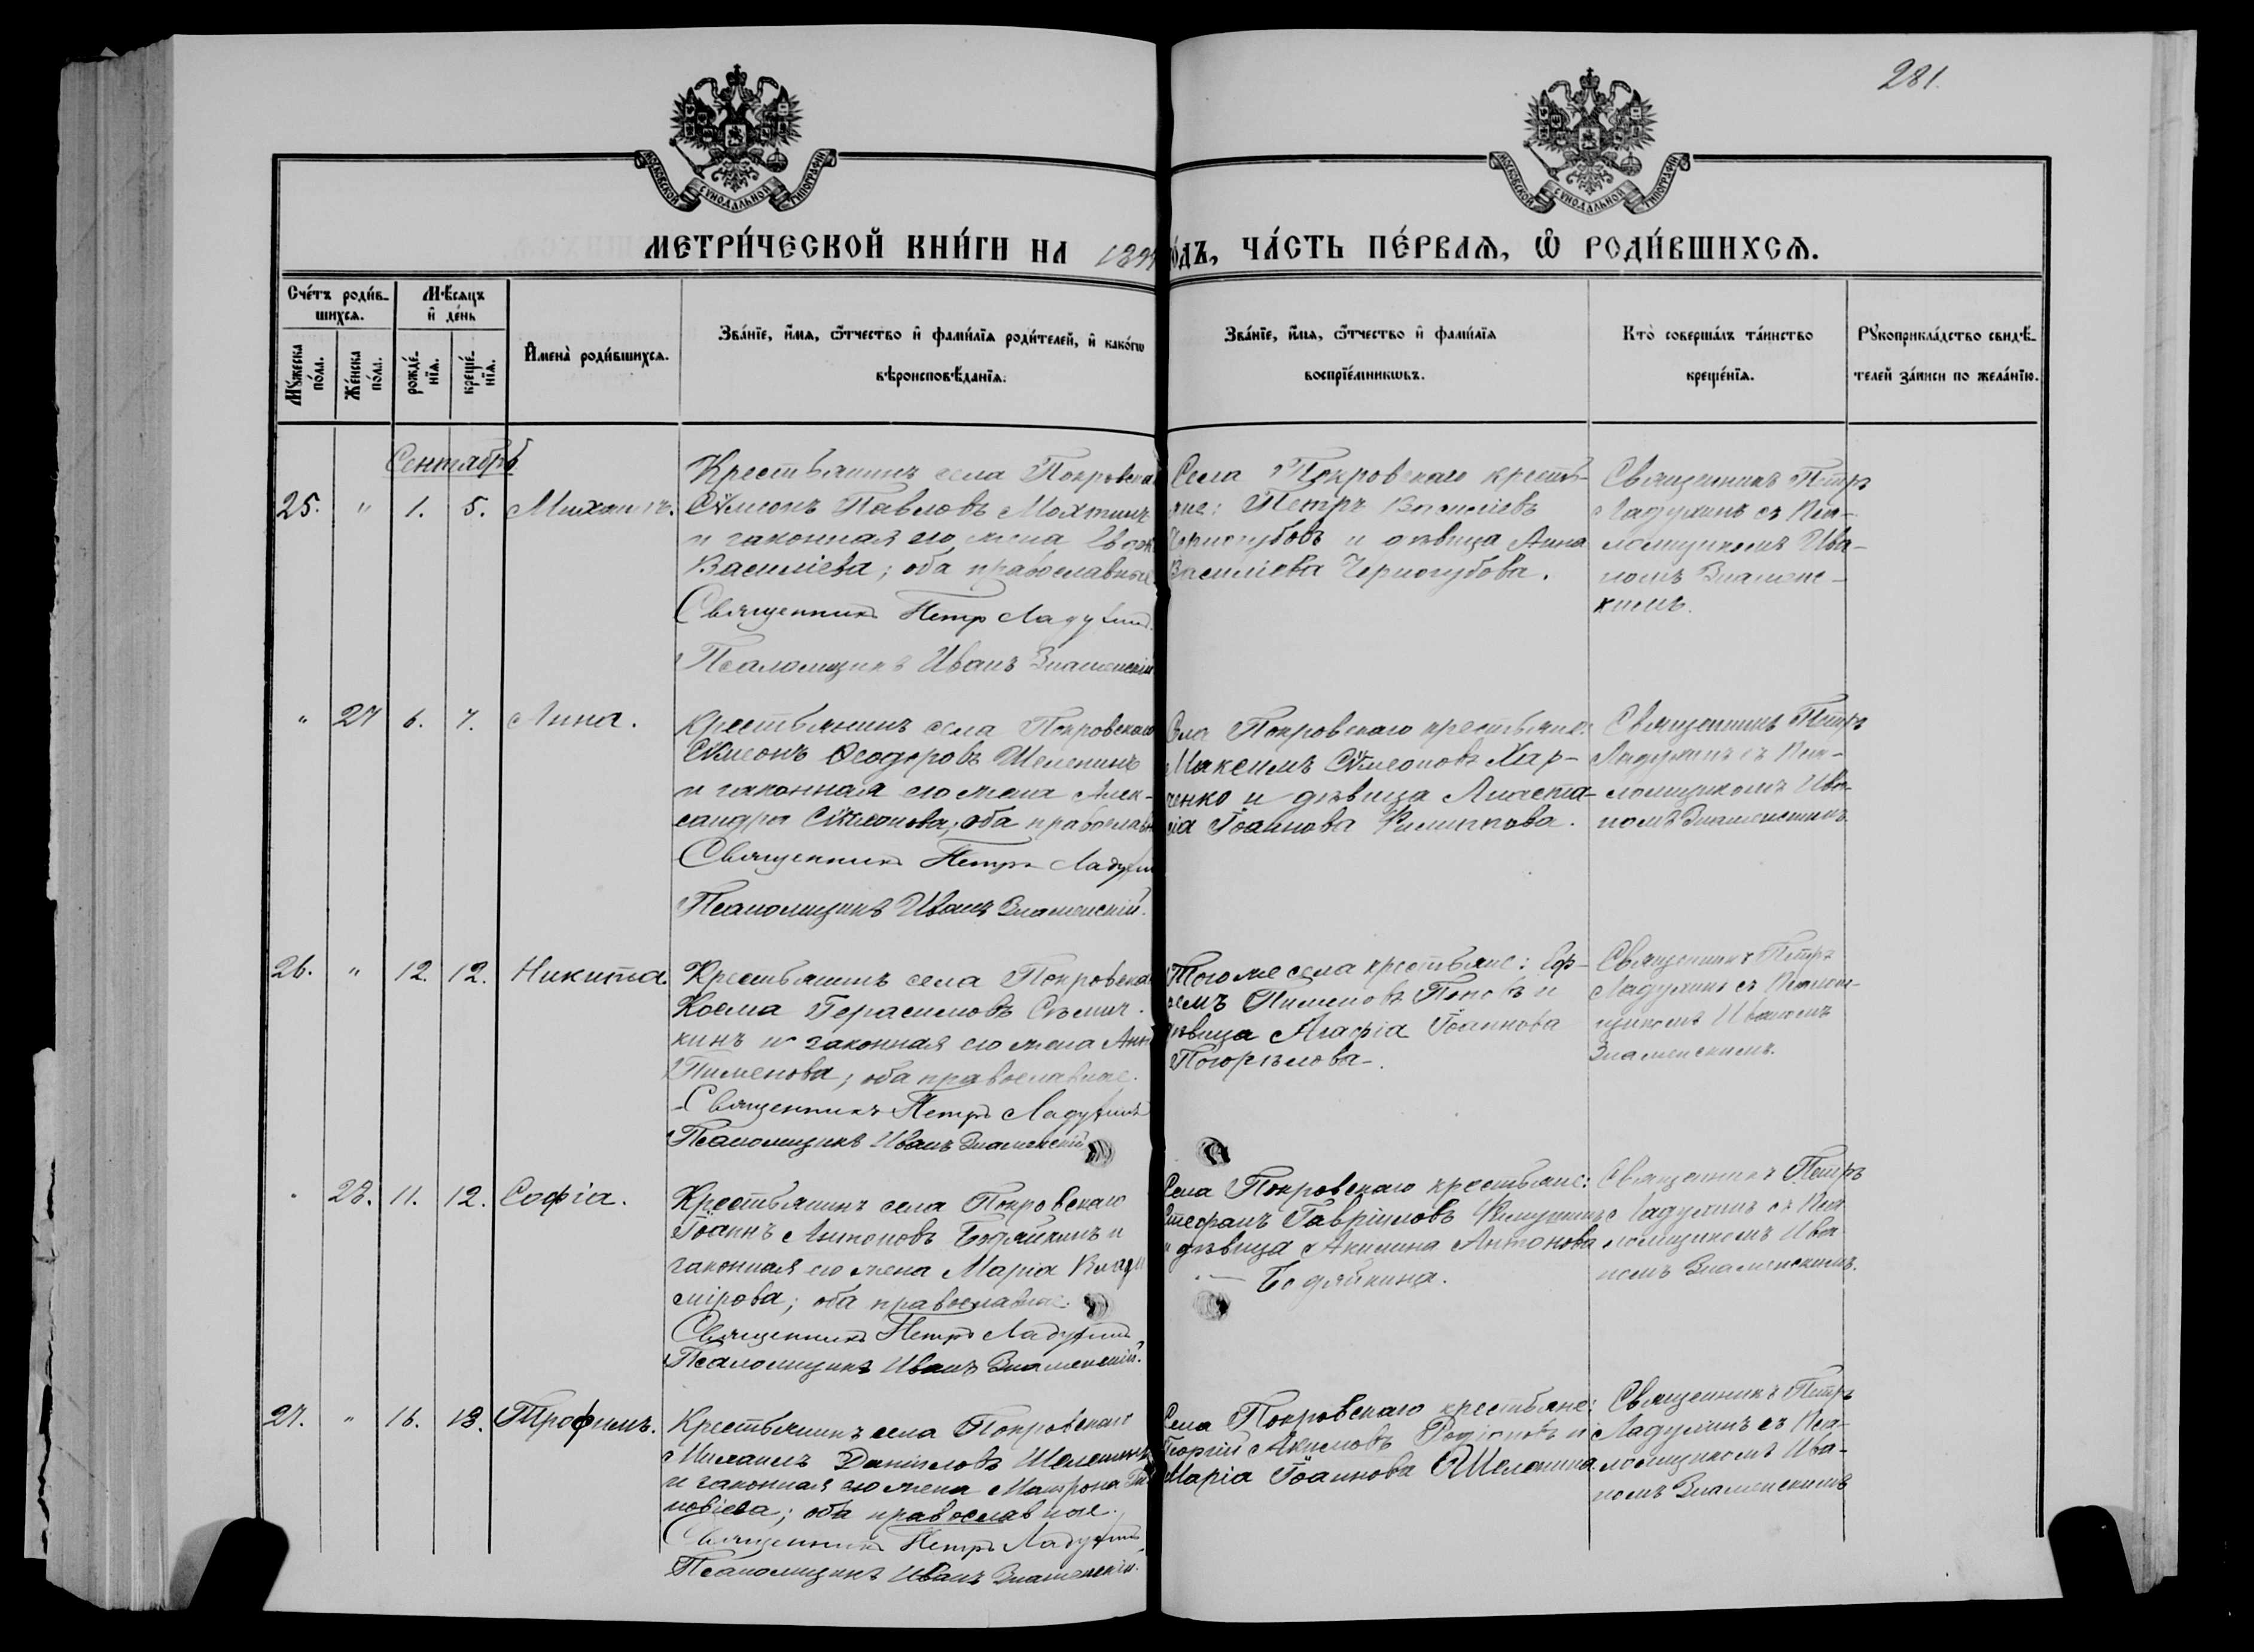 281.
МОСКОВСКОЙ СУНОДАЛЬНОЙ ТИПОГРАФИИ
МОСКОВСКОЙ СУНОДАЛЬНОЙ ТИПОГРАФИИ
МЕТРИ́ЧЕСКОЙ КНИ́ГИ НА 189
О́ДЪ, ЧА́СТЬ ПЕ́РВАѦ, Ѡ РОДИ́ВШИХСѦ.
Сче́тъ роди́в-
шихсѧ.
Мѣ́сѧцъ
и де́нь
Мꙋ́жеска
по́ла.
Же́нска
по́ла.
рожде́-
нїѧ.
креще́-
нїѧ.
И́мена̀ роди́вшихсѧ.
Зва́нїе, и́мѧ, ѻ́тчество и фами́лїѧ роди́телей, и како́гѡ
вѣроисповѣ́данїѧ.
Зва́нїе, и́мѧ, ѻ́тчество и фами́лїѧ
воспрїе́мникѡвъ.
Кто̀ соверша́лъ та́инство
креще́нїѧ.
Рꙋкоприкла́дство свидѣ́-
телей за́писи по жела́нїю.
Сентябрь
25. " 1. 5. Михаилъ.
Крестьянинъ села Покровска
Сѵмеонъ Павловъ Мохтинъ
и законная его жена
Василіева; оба православные
Священникъ Петр Ладухинъ.
Псаломщикъ Иванъ Знаменскій
Села Покровскаго кресть-
яне: Петръ Василіевъ
Черногубовъ и дѣвица Анна
Василіева Черногубова.
Священникъ Петръ
Ладухинъ съ Пса-
ломщикомъ Ива-
номъ Знаменс-
кимъ.
" 27 6. 7. Анна.
Крестьянинъ села Покровскаго
Сѵмеонъ Ѳеодоровъ Шеленинъ
и законная его жена Алек-
сандра Сѵмеонова; оба православн
Священникъ Петръ Ладухин
Псаломщикъ Иванъ Знаменскій.
Села Покровскаго крестьяне:
Максимъ Сѵмеоновъ Хар-
ченко и дѣвица Анаста-
сія Іоаннова Филиппова.
Священникъ Петръ
Ладухинъ съ Пса-
ломщикомъ Ива-
номъ Знаменскимъ
26. " 12. 12. Никита
Крестьянинъ села Покровска
Косма Герасимовъ
кинъ и законная его жена Анн
Пименова; оба православные.
Священникъ Петръ Ладухинъ
Псаломщикъ Иванъ Знаменскій
Того же села крестьяне:
Пименовъ Поповъ и
дѣвица Агафія Іоаннова
Погорѣлова.
Священникъ Петръ
Ладухинъ съ Псалом-
щикомъ Иваномъ
Знаменскимъ.
28. 11. 12. Софіа.
Крестьянинъ села Покровскаго
Іоаннъ Антоновъ Бодяйкинъ и
законная его жена Марія Влади
мірова; оба православные.
Священникъ Петръ Ладухинъ
Псаломщикъ Иванъ Знаменскій.
Села Покровскаго крестьяне:
Стефанъ Гавріиловъ
и дѣвица Акилина Антонова
Бодяйкина.
Священникъ Петръ
Ладухинъ съ Пса
ломщикомъ Ива
номъ Знаменскимъ.
27. " 16. 18. Трофимъ.
Крестьянинъ села Покровскаго
Михаилъ Даніиловъ Шеленинъ
и законная его жена Матрона
новіева; оба православные.
Священникъ Петръ Ладухинъ
Псаломщикъ Иванъ Знаменскій.
Села Покровскаго крестьяне:
Георгій Акимовъ Родіоновъ и
Марія Іоаннова Шеленина.
Священникъ Петръ
Ладухинъ съ Пса-
ломщикомъ Ива-
номъ Знаменскимъ